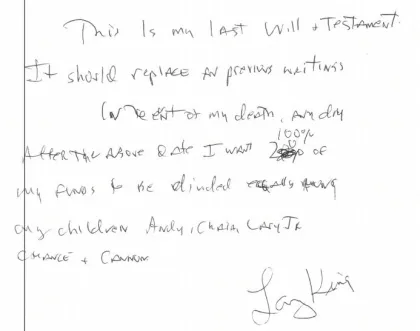 This Is my Last Will + Testament.
It should replace all previous writings
In the event of my death, any day
After the above date I want 100%
of
my funds to be divided equally among
my children Andy, Chaia, Larry Jr
Chance + Cannon
Larry King